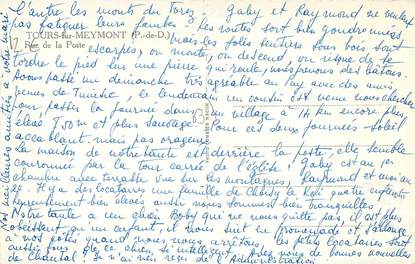 l'autre les monts du Forez. Gaby et Raymond ne veulent
pas fatiguer leurs jambes. Les routes sont bien goudronnées,
TOURS-sur-MEYMONT (P.-de-D.)
mais les jolies sentiers sous bois sont
Rue de la Poste
escarpés, on monte, on descend, on risque de se
tordre le pied sur une pierre qui roule, nous prenons des bâtons.
Nous passé un dimanche très agréable au Puy avec des amis
venus de Tunisie, le lendemain un cousin est venu nous chercher
pour passer la journée dans un village à 14 km encore plus
élevé et plus sauvage. Pour ces deux journées soleil
accablant, mais pas orageux.
la maison de notre tante est derrière la poste, elle semble
couronnée par le toit carré de l'église! Gaby est au
chambre avec terrasse vue sur les montagnes, Raymond et moi au
Il y a des locataires une famille de Choisy le Roi quatre enfants
heureusement bien élevés aussi nous sommes bien tranquilles!
Notre tante a un chien Boby qui ne nous quitte pas, il est plus
obéissant qu'un enfant, il nous suit en promenade et s'allonge
à nos pieds quand nous nous arrêtons, les petits locataires sont
aussi fous de ce chien si intelligent. Avez-nous de bonnes nouvelles
de Chantal? Je n'ai rien reçu de l'Administration
Nos meilleures amitiés à votre mari